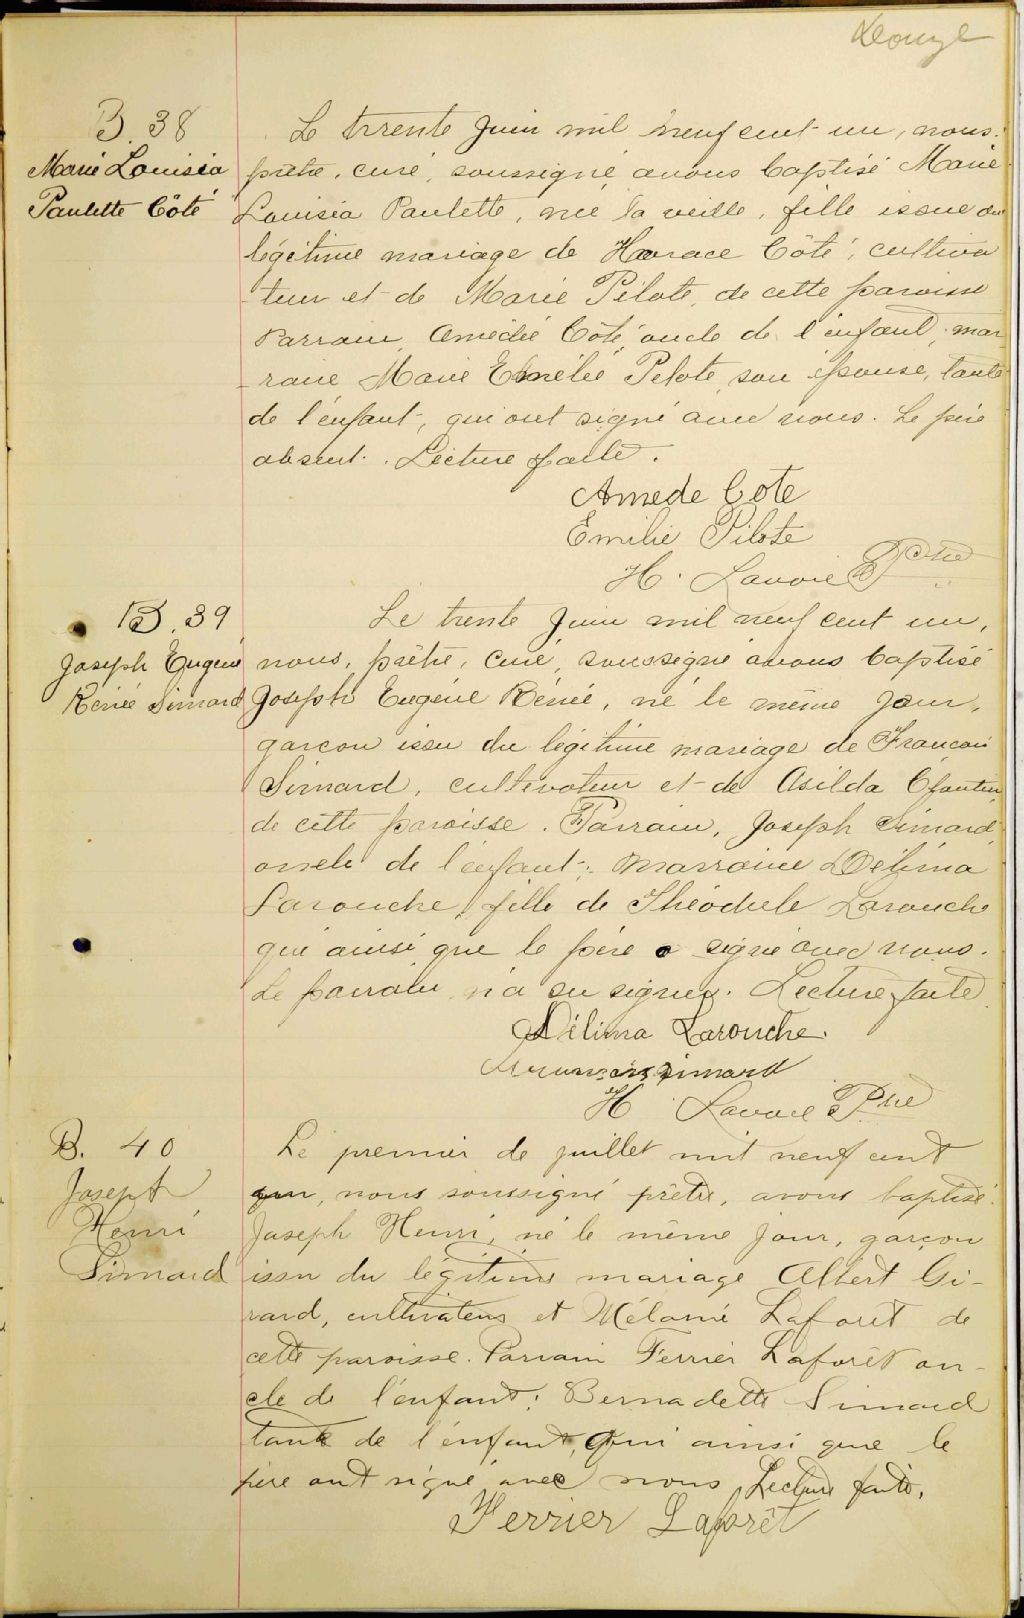 Douze
B. 38
Marie Louisia
Paulette Côté
Le trrente Juin mil neuf cent un, nous,
prêtre, curé, soussigné avons baptisé Marie
Louisia Paulette, née la veille, fille issue du
légitime mariage de Horace Côté, cultiva
teur et de Marie Pilote, de cette paroisse
Parrain, Amédée Côté, oncle de l'enfant, mar
raine Marie Emélie Pilote, son épouse, tante
de l'enfant, qui ont signé avec nous. Le père
absent. Lecture faite.
Amede Cote
Emilie Pilote
H. Lavoie Ptre
B. 39
Joseph Eugène
Rénée Simard
Le trente Juin mil neuf cent un,
nous, prêtre, curé, soussigné avons baptisé
Joseph Eugène Rénée, né le même jour,
garçon issu du légitime mariage de François
Simard, cultivateur et de Asilda
de cette paroisse. Parrain, Joseph Simard,
oncle de l'enfant; marraine Délima
Larouche, fille de Théodule Larouche
qui ainsi que le père a signé avec nous.
Le parrain n'a su signer. Lecture faite
Délima Larouche
Simard
H Lavoie Ptre
B. 40
Joseph
Henri
Simard
Le premier de juillet mil neuf cent
un, nous soussigné prêtre, avons baptisé
Joseph Henri, né le même jour, garçon
issu du légitime mariage Albert Gi-
rard, cultivateur et Mélanie Laforêt de
cette paroisse. Parrain Ferrier Laforêt on-
cle de l'enfant; Bernadette Simard
tante de l'enfant, qui ainsi que le
père ont signé avec nous Lecture faite.
Ferrier Laforêt